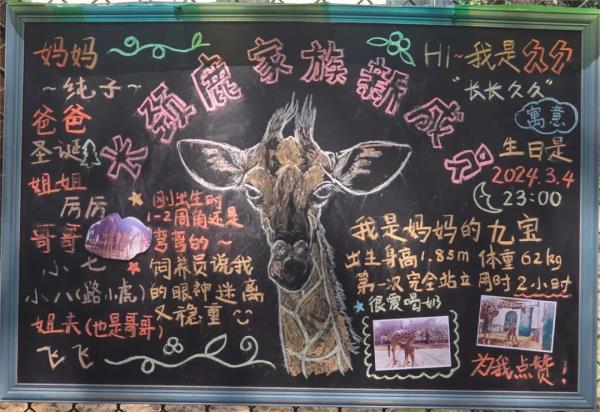 长颈鹿家族新成员
妈妈
~纯子~
爸爸
圣诞
姐姐
厉厉
哥哥
小七
小八(路小虎)
姐夫(也是哥哥)
飞飞
刚出生时
1-2周角还是
弯弯的~
饲养员说我
的眼神迷离
又稳重
Hi~我是久久
"长长久久"
寓意
生日是
2024.3.4
23:00
我是妈妈的九宝
出生身高1.85m 体重62kg
第一次完全站立用时2小时
很爱喝奶
为我点赞!